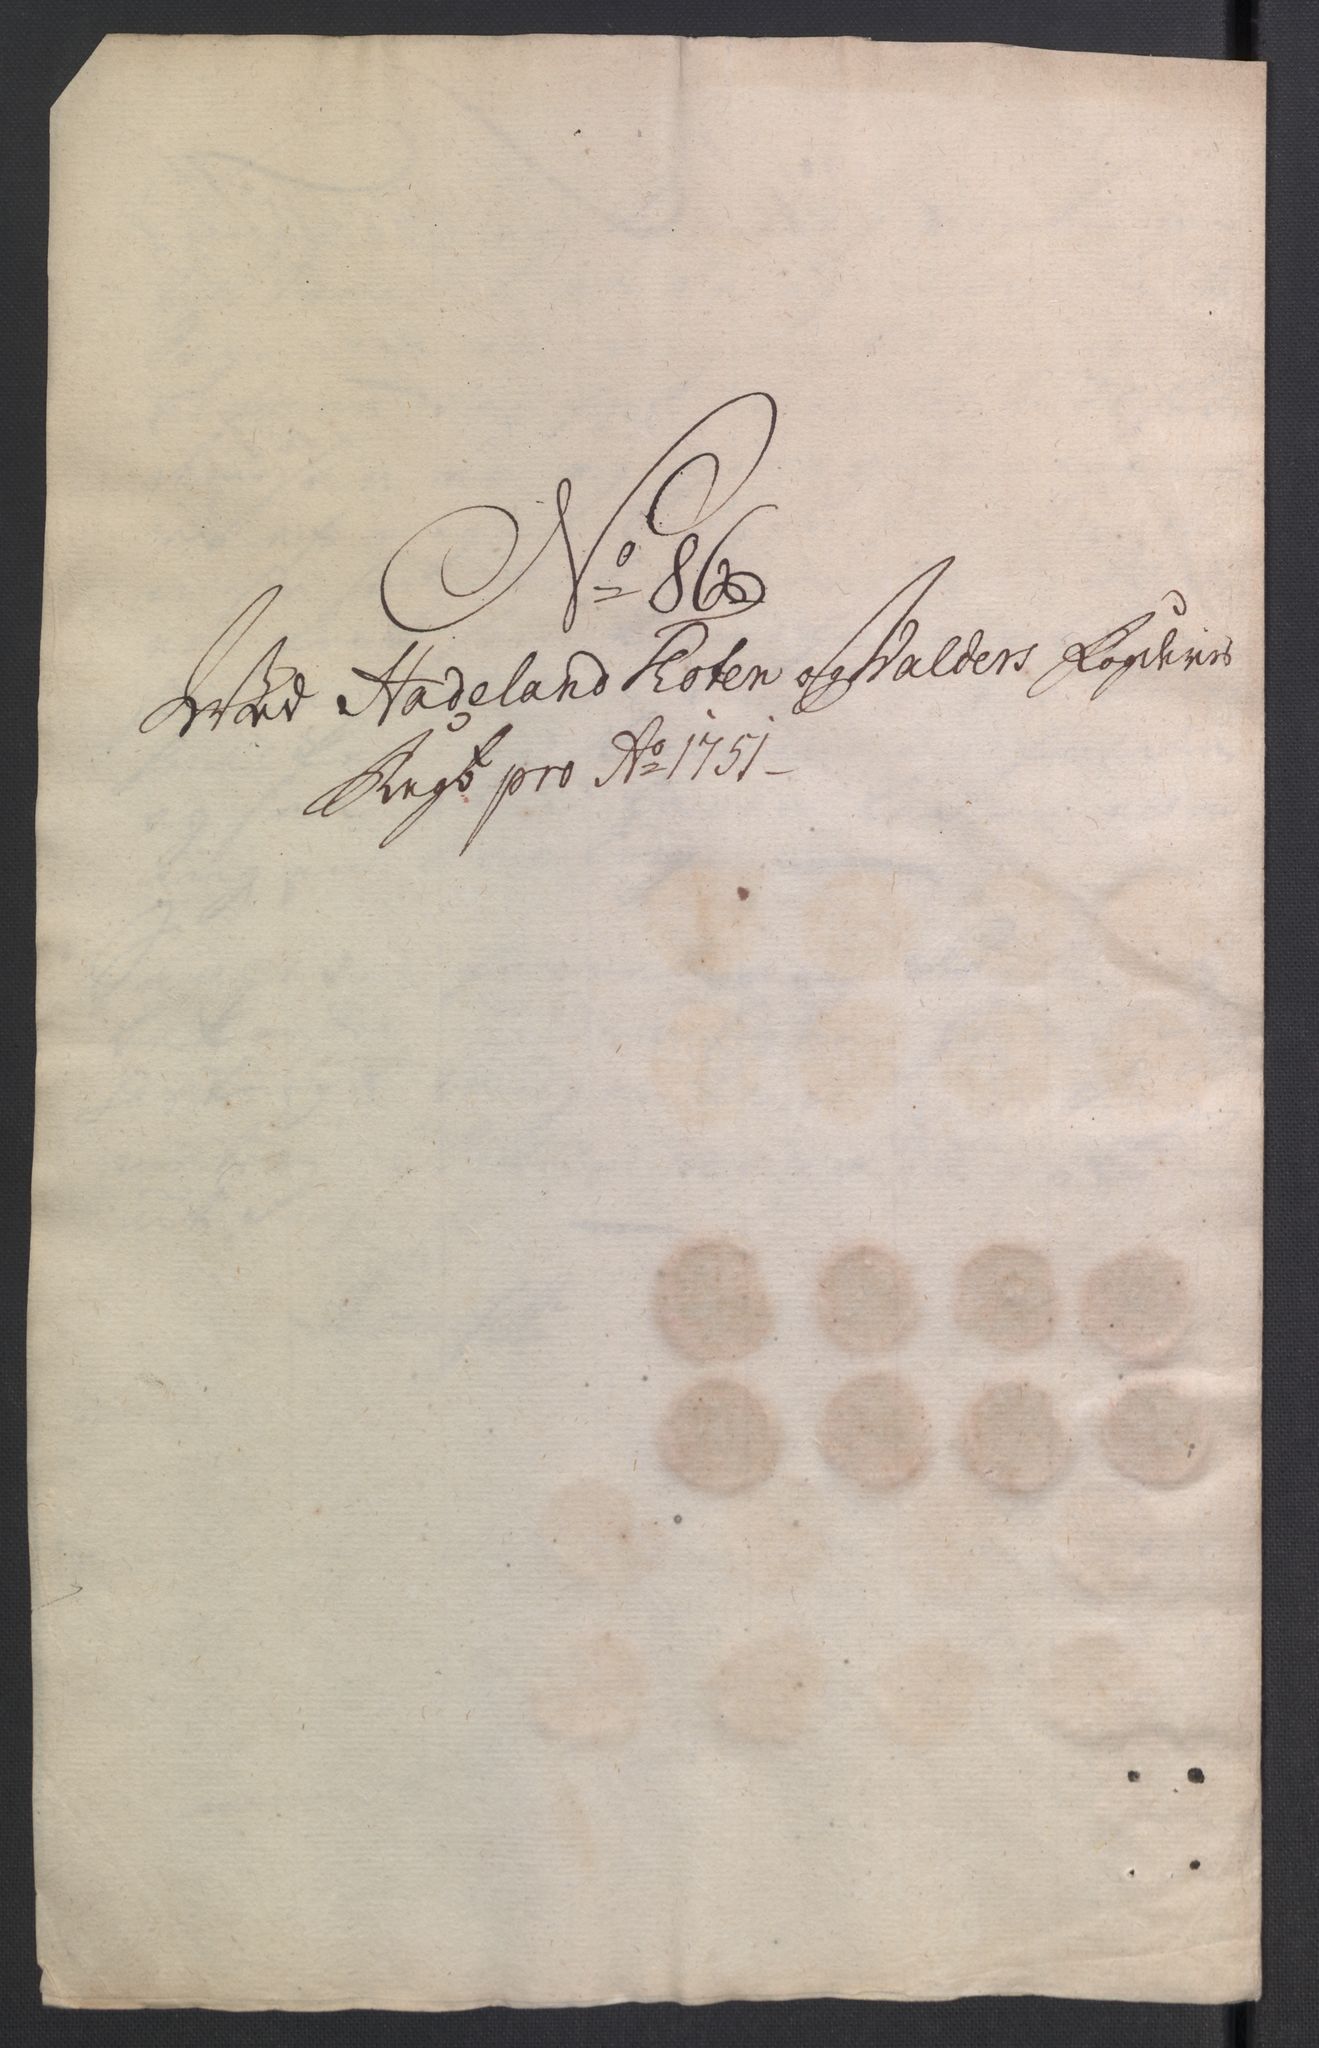 No 86
Ved Hadeland Toten og Valders Fogderies
Regsk pro Ao 1751